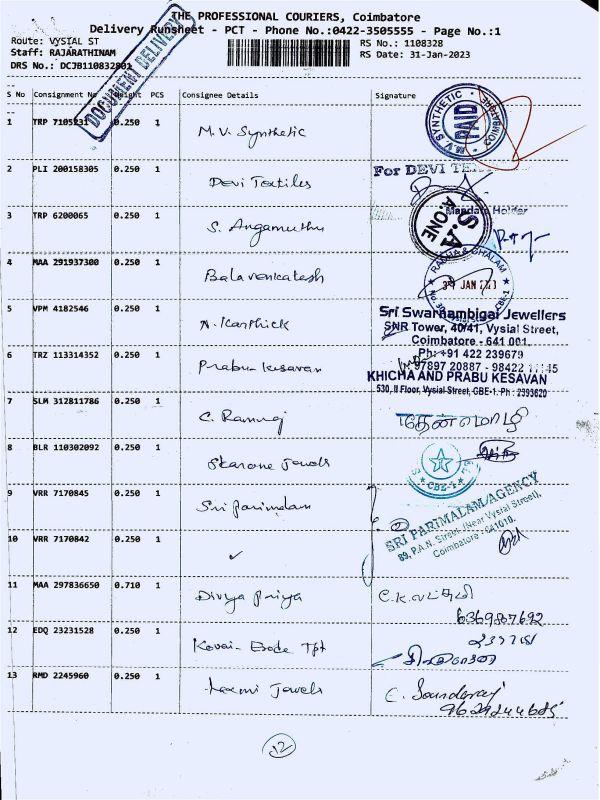 THE PROFESSIONAL COURIERS, Coimbatore
Delivery Runsheet - PCT - Phone No.:0422-3505555 - Page No.:1
Route: VYSIAL ST
RS No.: 1108328
Staff: RAJARATHINAM
RS Date: 31-Jan-2023
DRS No.: DCJB110832801
DOCUMENT DELIVERY
S No Consignment No Weight PCS Consignee Details Signature
1 TRP 7105231 0.250 1 M.V. Synthetic
M.V. SYNTHETIC
2 PLI 200158305 0.250 1 Devi Textiles
For DEVI
3 TRP 6200065 0.250 1 S. Angamuthu
Mandate Holder
S.A
A.ONE
4 MAA 291937300 0.250 1 Balavenkatesh
RADHA & GHALAM
JAN
5 VPM 4182546 0.250 1 N. Karthick
Sri Swarnambigai Jewellers
SNR Tower, 40/41, Vysial Street,
Coimbatore - 641 001.
6 TRZ 113314352 0.250 1 Prabu Kesavan
Ph: +91 422 239679
97897 20887 - 98422
KHICHA AND PRABU KESAVAN
530, II Floor, Vysial Street, CBE-1. Ph : 2393620
7 SLM 312811786 0.250 1 C. Ramraj
தேன்மொழி
8 BLR 110302092 0.250 1 Skarone Jewels
CBE-1
9 VRR 7170845 0.250 1 Sri Parimalam
SRI PARIMALAM AGENCY
89, P.A.N. Street, (Near Vysial Street),
Coimbatore - 641010.
10 VRR 7170842 0.250 1 ✓
11 MAA 297836650 0.710 1 Divya Priya
6369867692
12 EDQ 23231528 0.250 1 Kovai-Erode Tpt
13 RMD 2245960 0.250 1 Laxmi Jewels
C. Soundaraj
9629244685
12